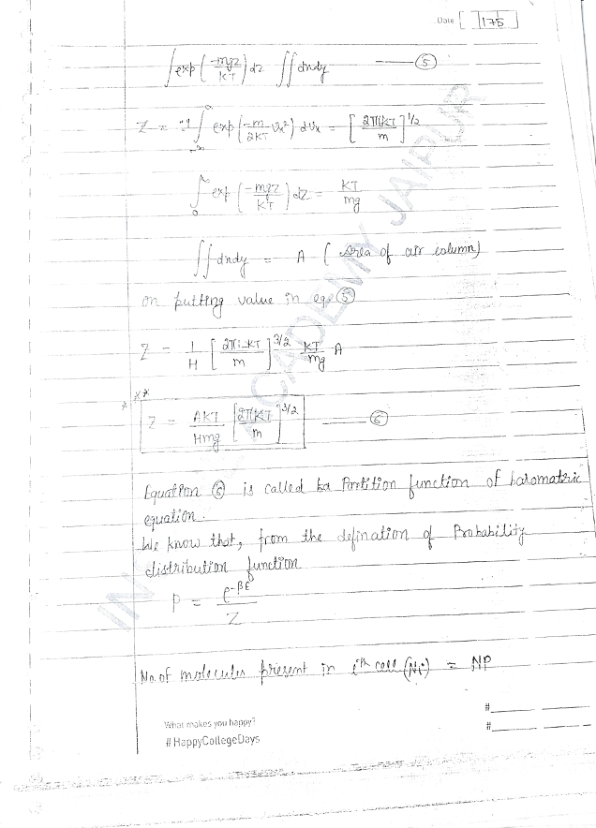 Date 175
∫exp(-mgz/KT)dz ∫∫dxdy —— ⑤
Z = ∫ exp(-m/2KT Vx²) dVx = [2πKT/m]^1/2
∫₀^∞ exp(-mgz/KT)dz = KT/mg
∫∫dxdy = A (Area of air column)
on putting value in eqn ⑤
Z = 1/H [2πKT/m]^3/2 KT/mg A
*** Z = AKT/Hmg [2πKT/m]^3/2 —— ⑥
Equation ⑥ is called Partition function of barometric
equation.
We know that, from the defination of Probability
distribution function
P = e^-βE/Z
No of molecules present in ith cell (Ni) = NP
#
What makes you happy? #
#HappyCollegeDays
IN ACADEMY JAIPUR